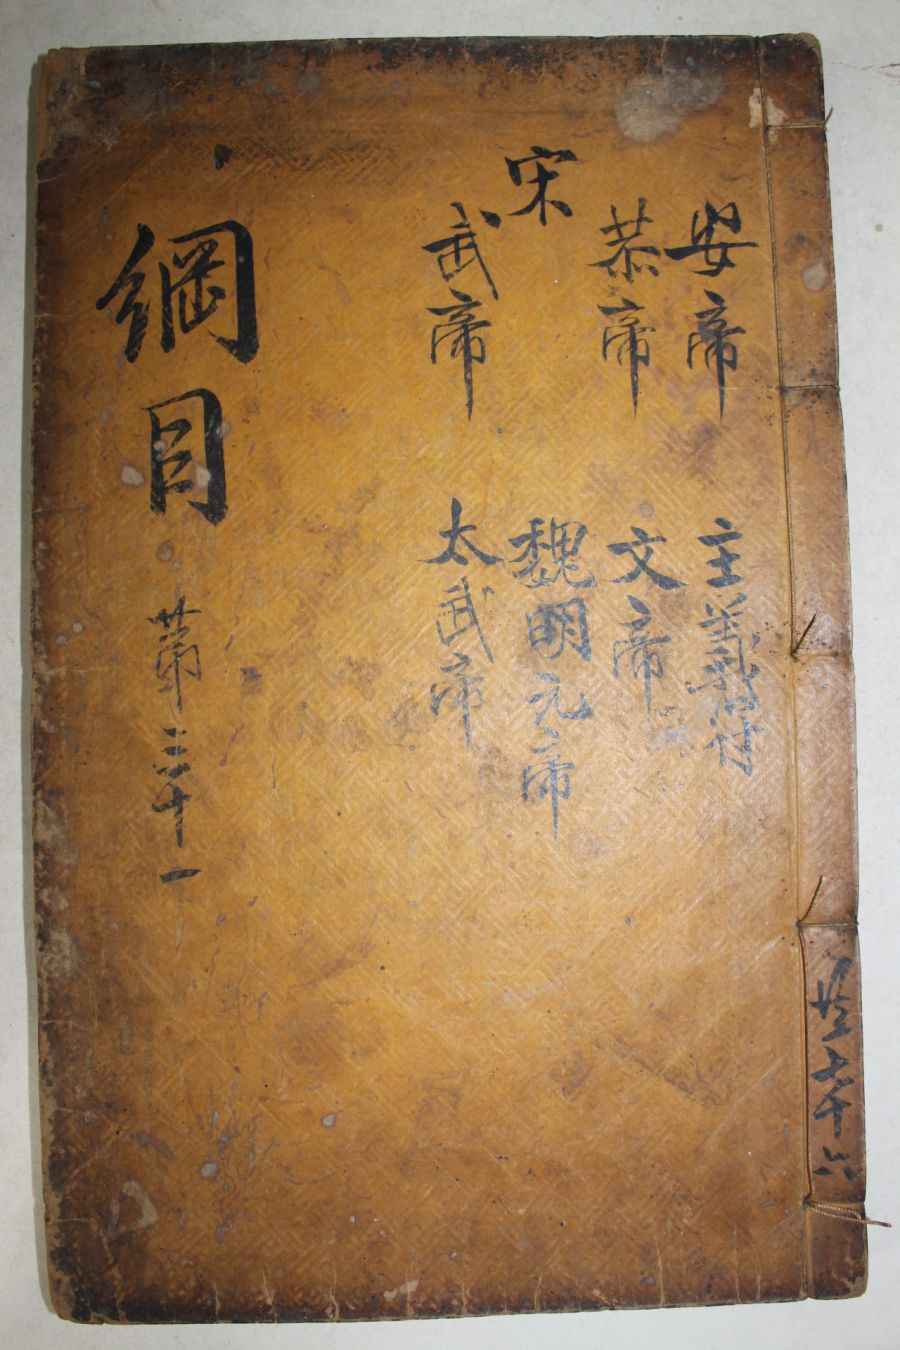 共七十六
安帝 主義符
恭帝 文帝
宋 魏明元帝
武帝 太武帝
綱目 第三十一